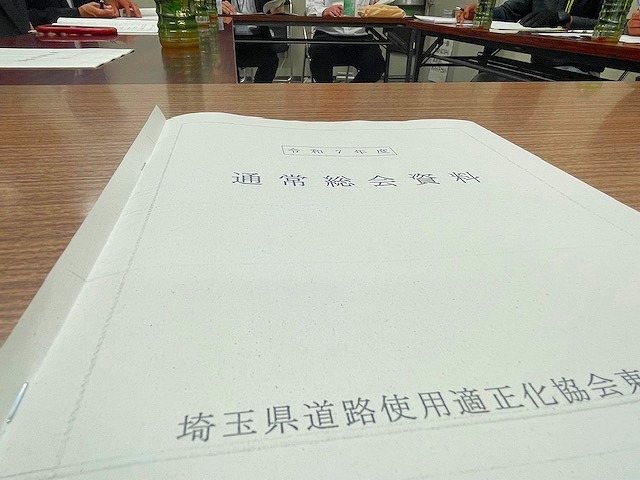 令和7年度
通常総会資料
埼玉県道路使用適正化協会東